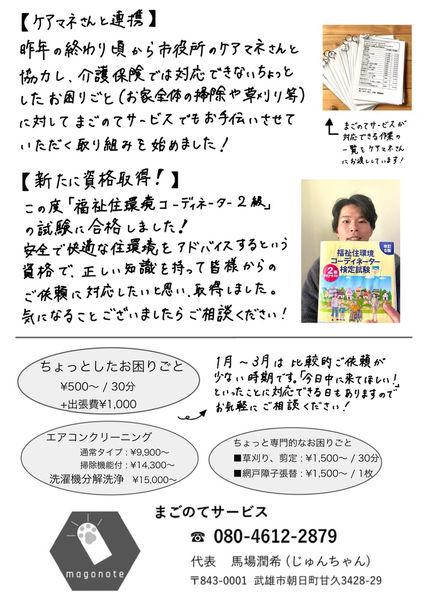 【ケアマネさんと連携】
昨年の終わり頃から市役所のケアマネさんと
協力し、介護保険では対応できないちょっと
したお困りごと（お家全体の掃除や草刈り等）
に対してまごのてサービスでもお手伝いさせて
いただく取り組みを始めました！
まごのてサービスが
対応できる作業の
一覧をケアマネさん
にお渡ししています！
【新たに資格取得！】
この度「福祉住環境コーディネーター2級」
の試験に合格しました！
安全で快適な住環境をアドバイスするという
資格で、正しい知識を持って皆様からの
ご依頼に対応したいと思い、取得しました。
気になることございましたらご相談ください！
福祉住環境
コーディネーター
検定試験
2級
ちょっとしたお困りごと
¥500〜 / 30分
+出張費¥1,000
1月〜3月は比較的ご依頼が
少ない時期です。「今日中に来てほしい！」
といったことに対応できる日もありますので
お気軽にご相談ください！
エアコンクリーニング
通常タイプ：¥9,900〜
掃除機能付：¥14,300〜
洗濯機分解洗浄 ¥15,000〜
ちょっと専門的なお困りごと
■草刈り、剪定：¥1,500〜 / 30分
■網戸障子張替：¥1,500〜 / 1枚
magonote
まごのてサービス
☎ 080-4612-2879
代表 馬場潤希（じゅんちゃん）
〒843-0001 武雄市朝日町甘久3428-29